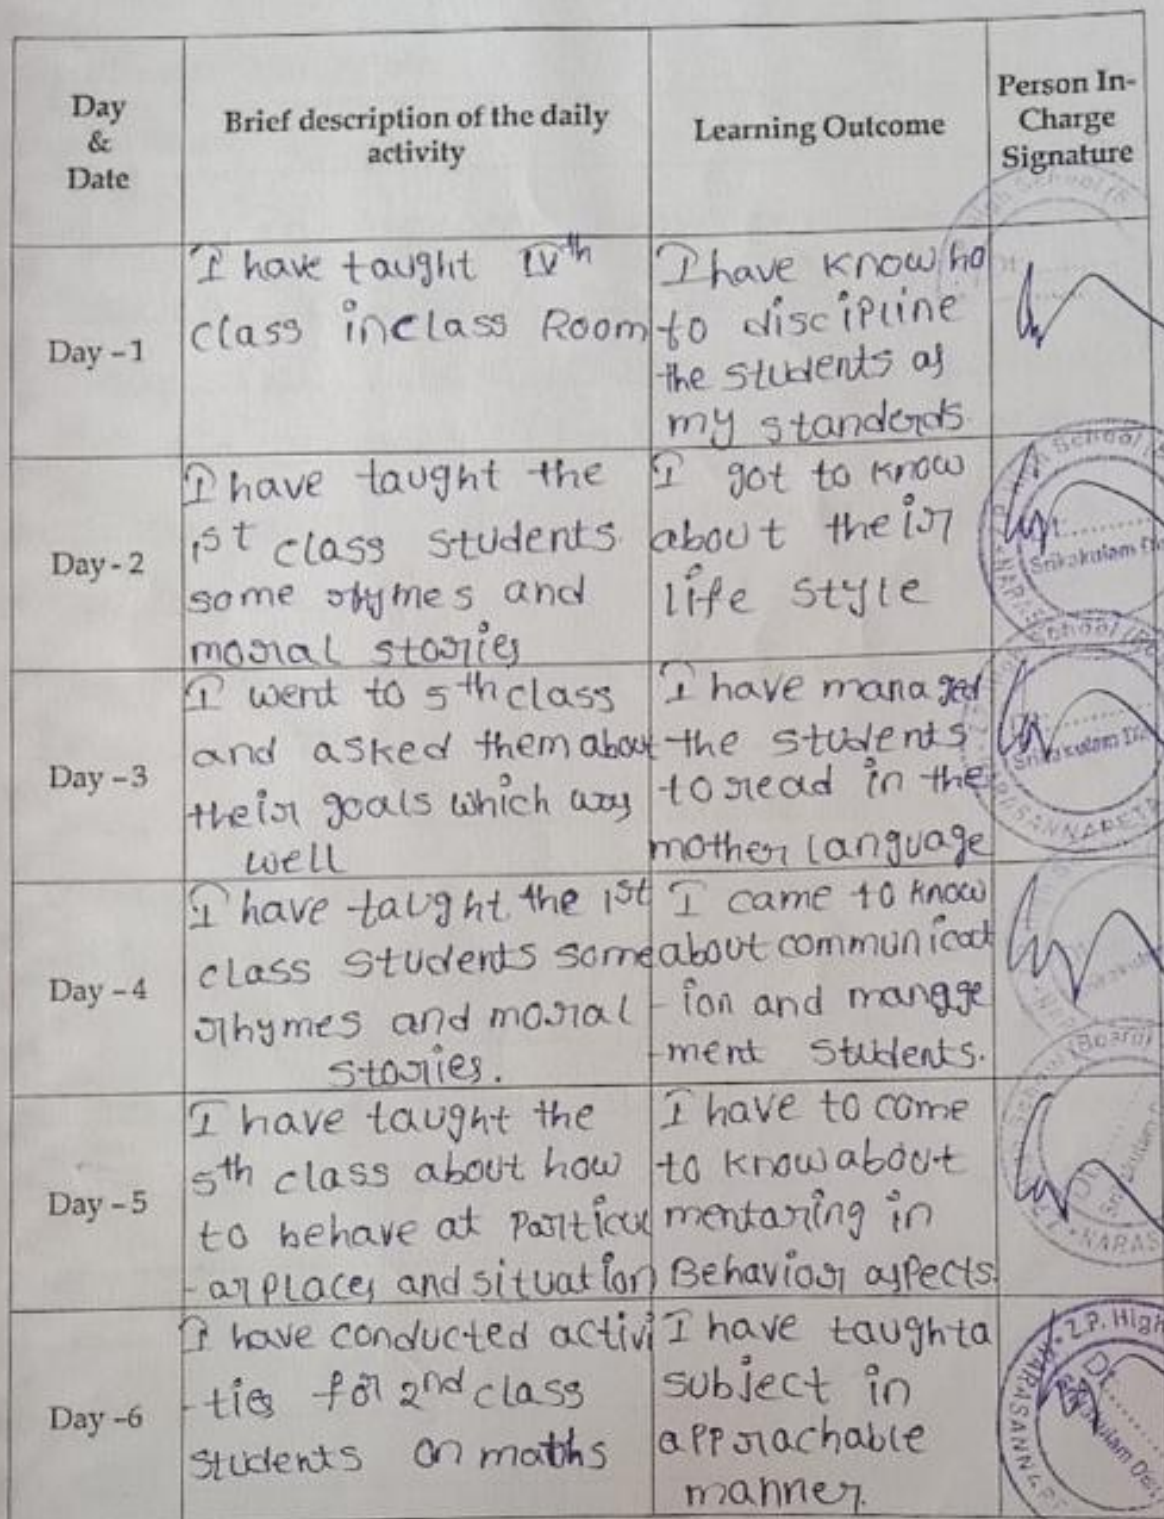 Day
&
Date
Brief description of the daily
activity
Learning Outcome
Person In-
Charge
Signature
Day - 1
I have taught IVth
class inclass Room
I have know ho
to discipline
the students as
my standerds.
Day - 2
I have taught the
1st class students
some rhymes and
moral stories
I got to know
about their
life style
School
Srikakulam
Day - 3
I went to 5th class
and asked them about
their goals which was
well
I have managed
the students
to read in the
mother language
School
Srikakulam
NARASANNAPETA
Day - 4
I have taught the 1st
class students some
rhymes and moral
stories.
I came to know
about communicat
-ion and manage
-ment students.
Day - 5
I have taught the
5th class about how
to behave at Particul
-ar places and situation
I have to come
to know about
mentaring in
Behavior aspects.
(Board)
Day -6
I have conducted activi
-ties for 2nd class
students on maths
I have taught a
subject in
approachable
manner.
Z.P. High